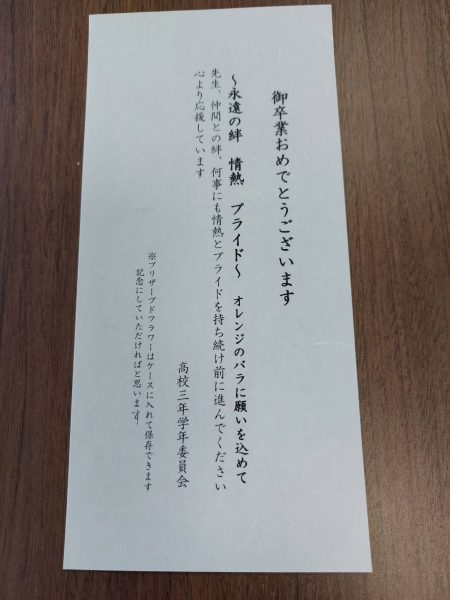 御卒業おめでとうございます
～永遠の絆　情熱　プライド～　オレンジのバラに願いを込めて
先生、仲間との絆、何事にも情熱とプライドを持ち続け前に進んでください
心より応援しています
高校三年学年委員会
※プリザーブドフラワーはケースに入れて保存できます
記念にしていただければと思います！